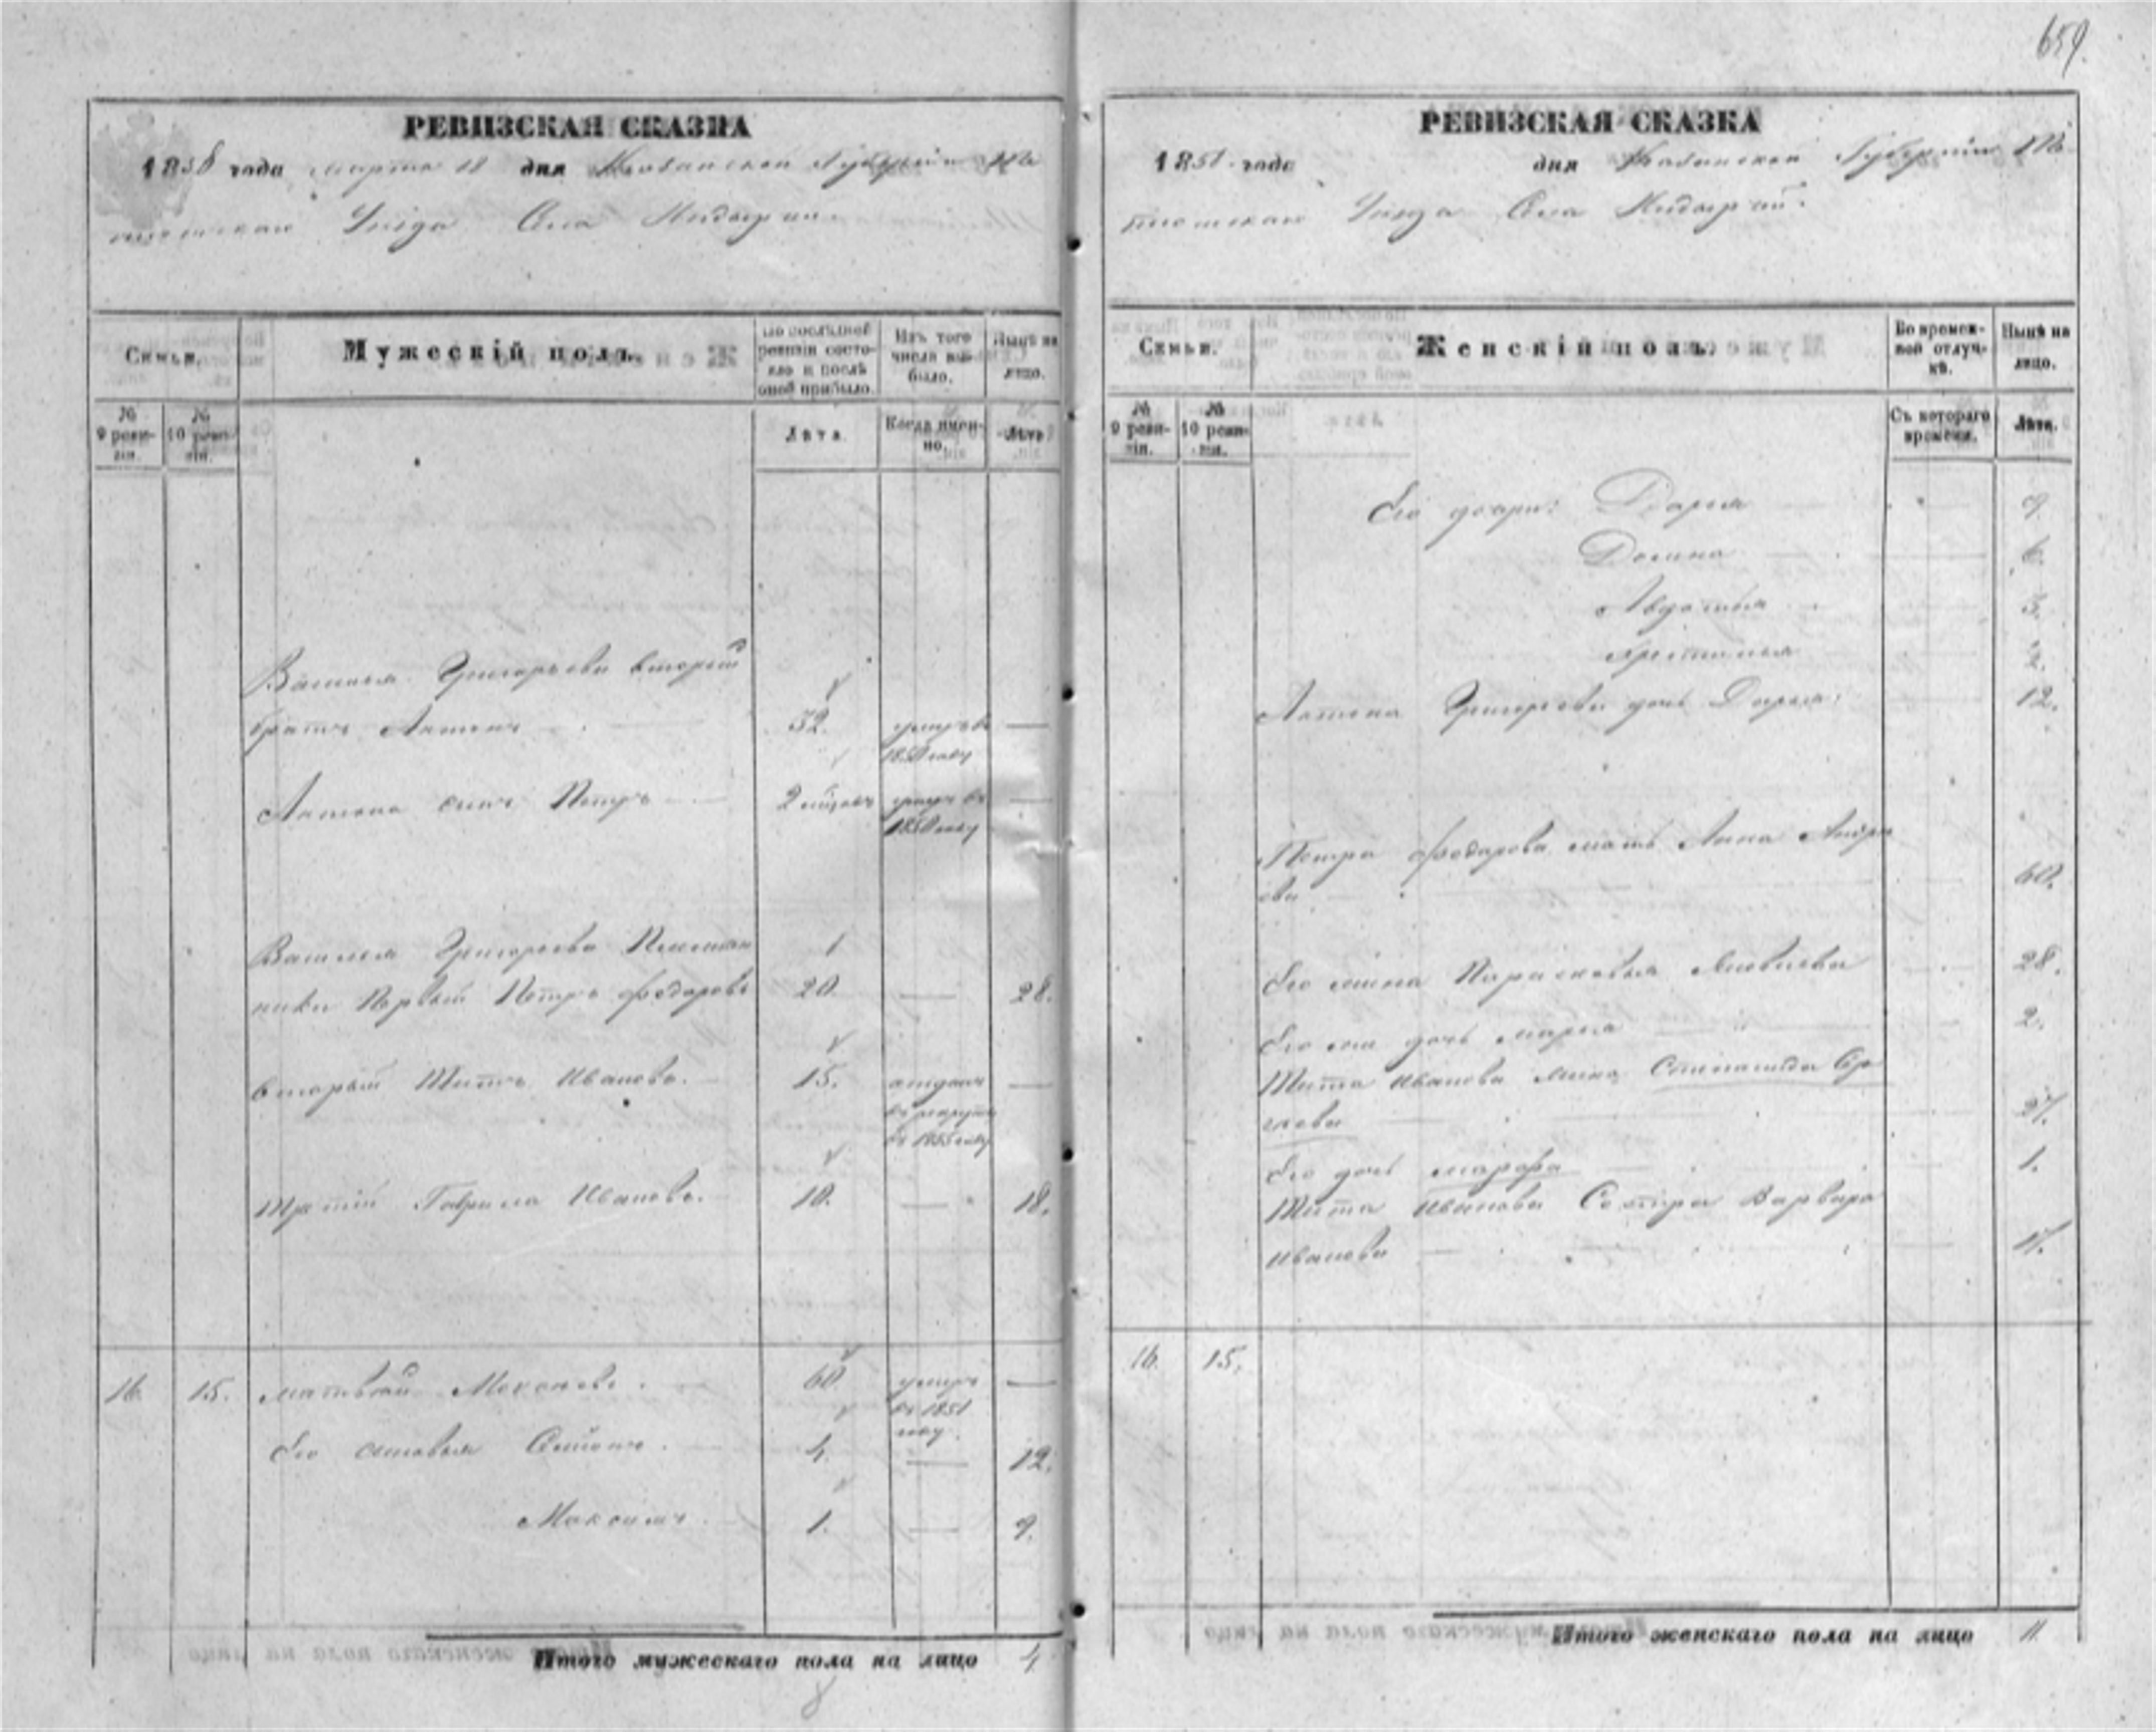 659.
РЕВИЗСКАЯ СКАЗКА
1858 года марта 18 дня Казанской Губернии Те-
тюшскаго Уезда Села
Семьи.
Мужескій полъ.
По послѣдней ревизіи состо-яло и послѣ оной прибыло.
Изъ того числа вы-было.
Нынѣ на лицо.
№ 9 реви-зіи.
№ 10 реви-зіи.
Лѣта.
Когда имен-но.
Лѣта.
Василья Григорьева вторый
братъ Антонъ 32. умеръ въ
1850 году
Антона сынъ Петръ 2 умеръ въ
1850 году
Василья Григорьева Племян
ники Первый Петръ Федоровъ 20. 28.
вторый Титъ Ивановъ. 15. отданъ
въ рекруты
въ 1855 году
Третій Гаврила Ивановъ. 10. 18.
16. 15. Матвей 60. умеръ
въ 1851
году.
Его сыновья 4. 12.
Максимъ. 1. 9.
Итого мужескаго пола на лицо 4
РЕВИЗСКАЯ СКАЗКА
185 года дня Казанской Губернии Те-
тюшскаго Уезда Села
Семьи.
Женскій полъ.
Во времен-ной отлуч-кѣ.
Нынѣ на лицо.
№ 9 реви-зіи.
№ 10 реви-зіи.
Съ котораго времени.
Лѣта.
Его дочери: Дарья 9.
6.
Авдотья 3.
2.
Антона Григорьева дочь Дарья. 12.
Петра Федорова мать Анна Андре
ева 60.
Его жена Парасковья 28.
Его дочь Марья 2.
Тита Иванова жена Степанида
27.
Его дочь Марфа 1.
Тита Иванова Сестра Варвара
Иванова
16. 15.
Итого женскаго пола на лицо 11.